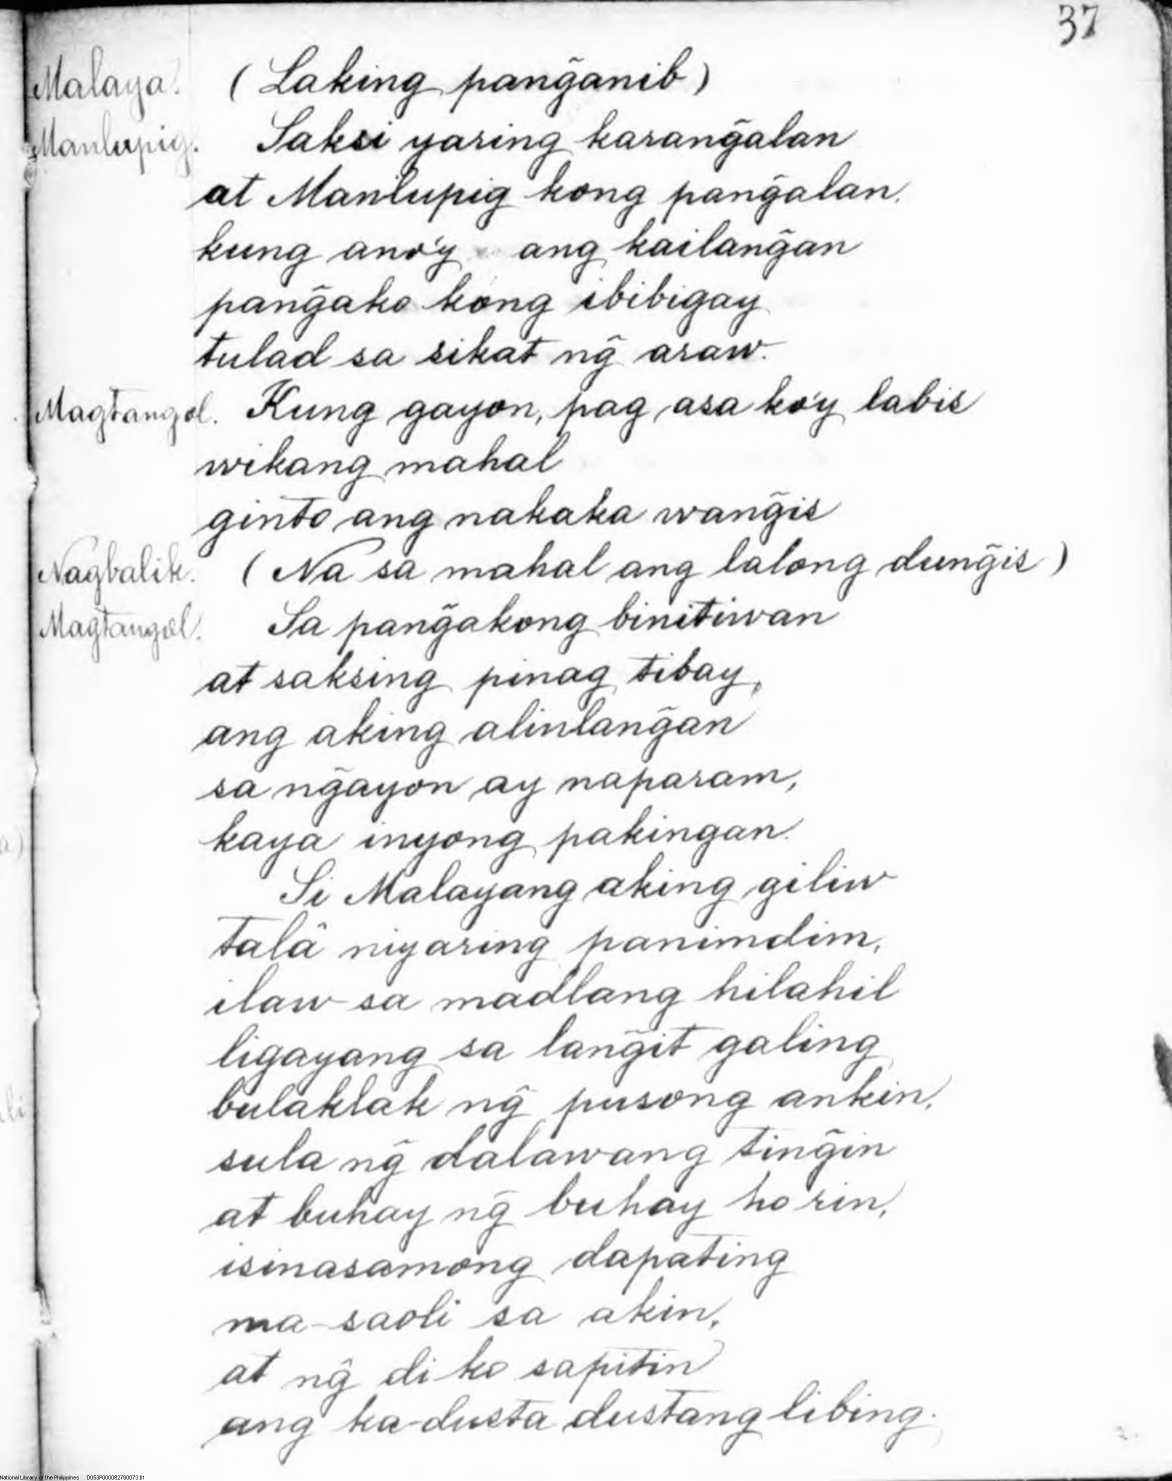 37
Malaya. (Laking pang̃anib)
Manlupig. Saksi yaring karang̃alan
at Manlupig kong pang̃alan.
kung ano'y ang kailang̃an
pang̃ako kong ibibigay
tulad sa sikat ng̃ araw.
Magtangol. Kung gayon, pag asa ko'y labis
wikang mahal
ginto ang nakaka wang̃is
Nagbalik. (Na sa mahal ang lalong dung̃is)
Magtangol. Sa pang̃akong binitiwan
at saksing pinag tibay,
ang aking alinlang̃an
sa ng̃ayon ay naparam,
kaya inyong pakingan.
Si Malayang aking giliw
talâ niyaring panimdim,
ilaw sa madlang hilahil
ligayang sa lang̃it galing
bulaklak ng̃ pusong ankin,
sula ng̃ dalawang ting̃in
at buhay ng̃ buhay ko rin,
isinasamong dapating
ma-saoli sa akin,
at ng̃ di ko sapitin
ang ka-dusta dustang libing.
National Library of the Philippines